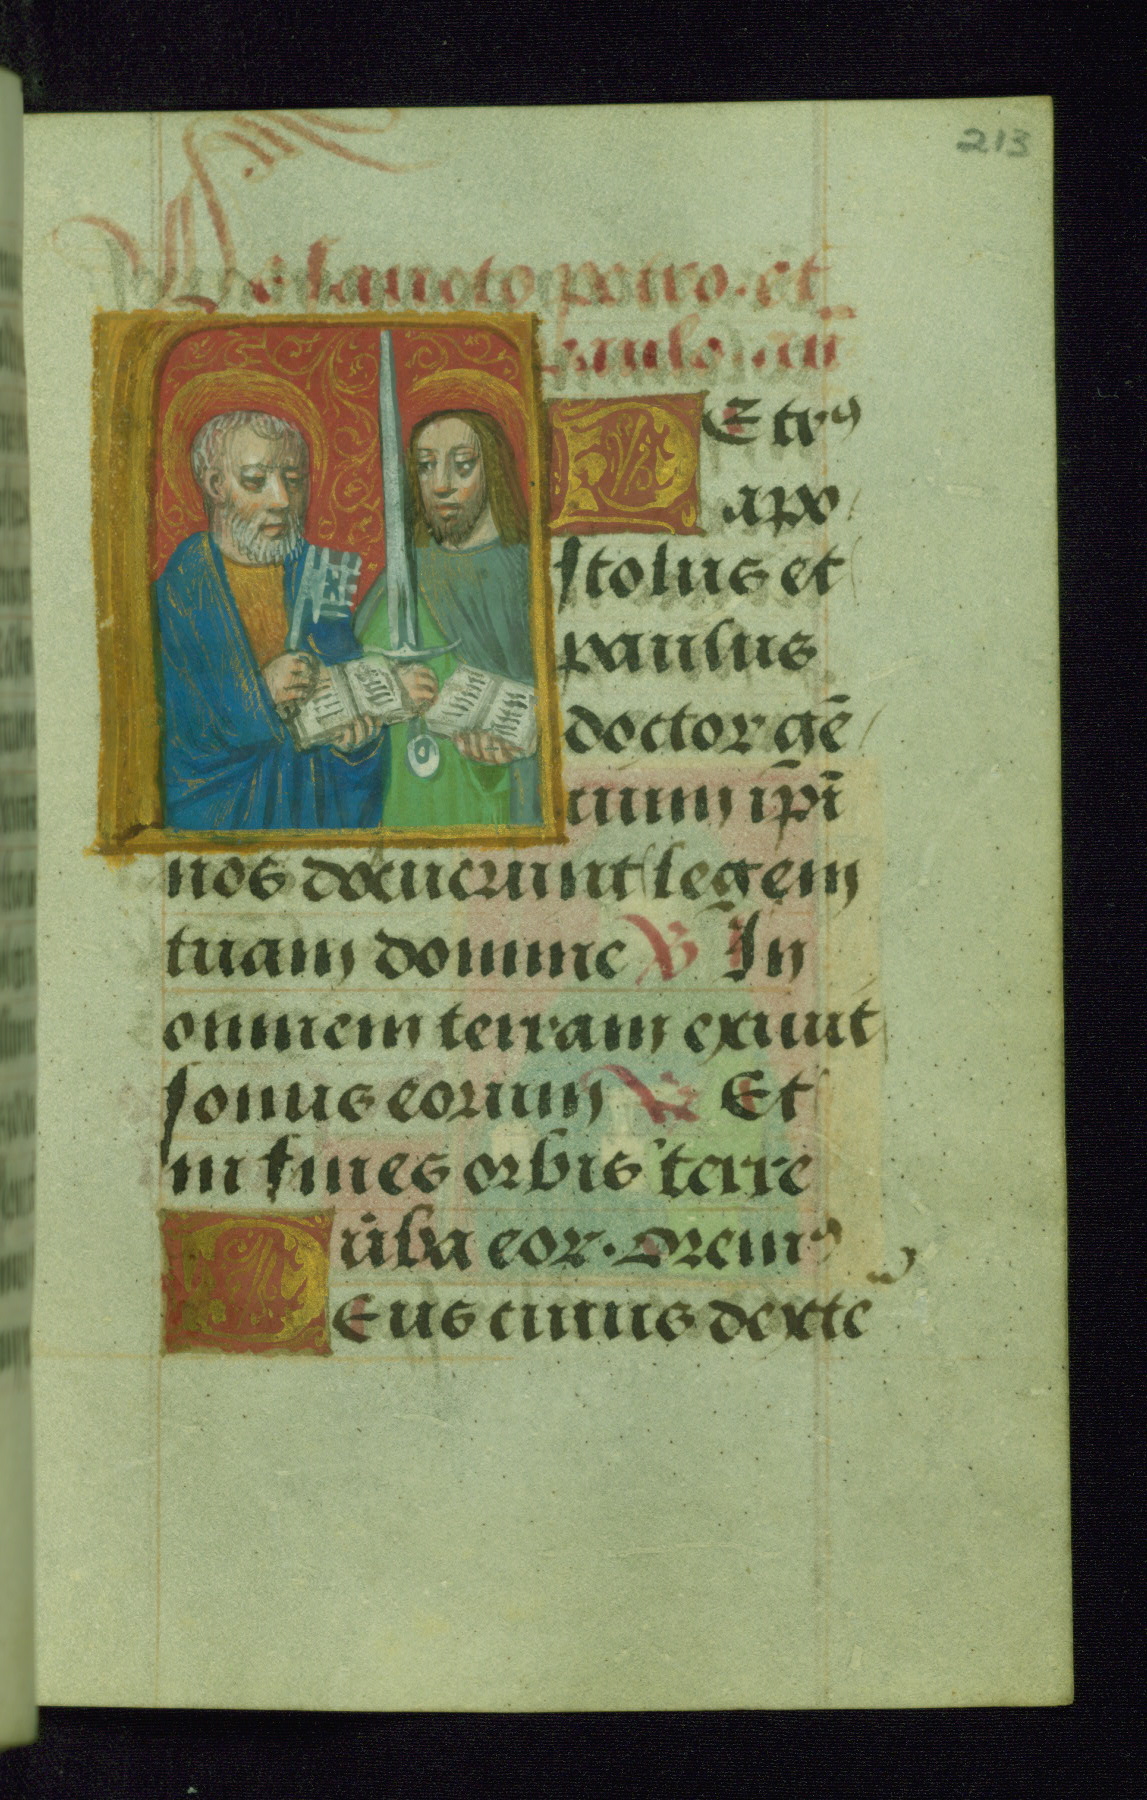 213
De sancto petro. et
paulo. añ
PEtrꝰ
apo
stolus et
paulus
doctor gē
cium ip̄i
nos docuerunt legem
tuam domine ℣ In
omnem terram exiuit
sonus eorum ℟ Et
in fines orbis terre
v̄ba eoꝝ. Oremꝰ
DEus cuius dexte